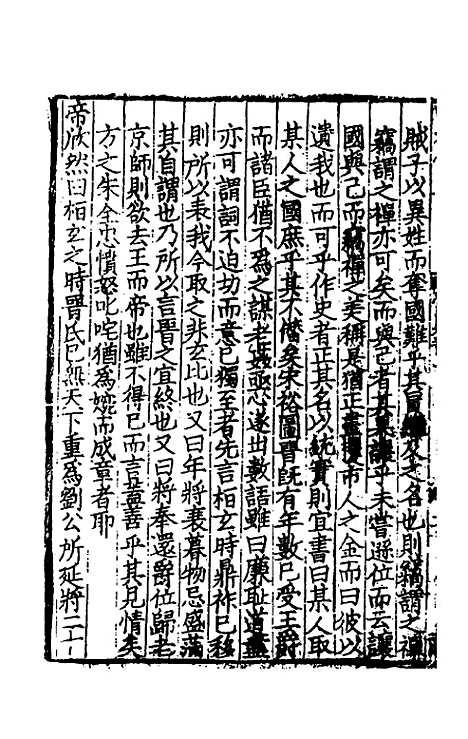 賊子以異姓而奪國難乎其冒禪及之名也則竊謂之禪
竊謂之禪亦可矣而與己者其果讓乎未嘗遜位而云讓
國與己而竊禪之美稱是猶正晝攫市人之金而曰彼以
遺我也而可乎作史者正其名以統實則宜書曰某人取
某人之國庶乎其不僭矣宋裕圖晋既有年數已受王爵
而諸臣猶不為之謀老姦亟恐遂出數語雖曰廉耻道盡
亦可謂詞不迫切而意已獨至者先言桓玄時鼎祚已移
則所以表我今取之非玄比也又曰年將衰暮物忌盛滿
其自謂也乃所以言晋之宜終也又曰將奉還爵位歸老
京師則欲去王而帝也雖不得已而言盖善乎其見情矣
方之朱全忠憤怒叱咤猶為婉而成章者耶
帝欣然曰桓玄之時晋氏已無天下重為劉公所延將二十